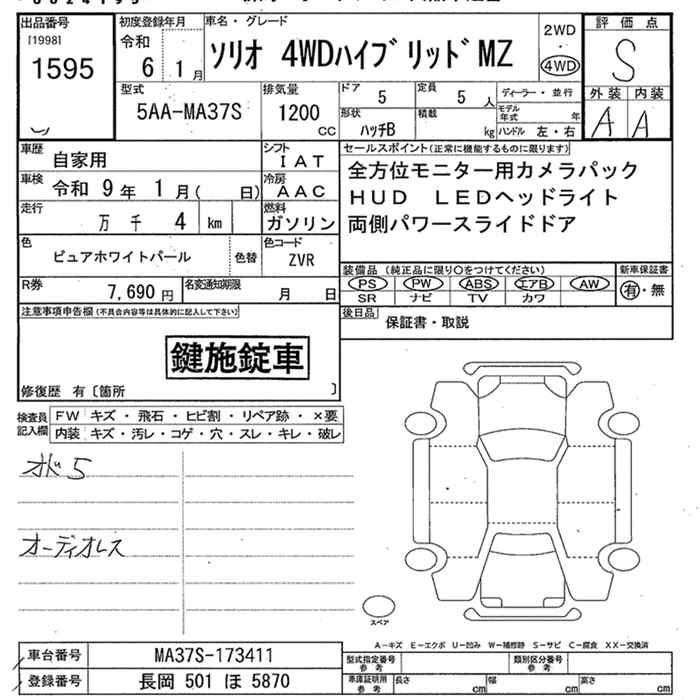 出品番号
[1998]
1595
初度登録年月
令和
6 1月
車名・グレード
ソリオ 4WDハイブリッドMZ
2WD
・
4WD
評価点
S
外装 内装
A A
型式
5AA-MA37S
排気量
1200
cc
ドア
5
定員
5 人
ディーラー・並行
モデル年式 年
形状
ハッチB
積載
kg
ハンドル 左・右
車歴
自家用
シフト
IAT
車検
令和 9年 1月( 日)
冷房
AAC
走行
万 千 4 km
燃料
ガソリン
色
ピュアホワイトパール
色替
色コード
ZVR
R券
7,690 円
名変通知期限
月 日
セールスポイント(正常に機能するものに限ります)
全方位モニター用カメラパック
HUD LEDヘッドライト
両側パワースライドドア
装備品(純正品に限り○をつけてください)
PS PW ABS エアB AW
SR ナビ TV カワ
新車保証書
有・無
後日品
保証書・取説
注意事項申告欄(不具合内容等は具体的に記入して下さい)
鍵施錠車
修復歴 有〔箇所 〕
検査員
記入欄
FW キズ・飛石・ヒビ割・リペア跡・×要
内装 キズ・汚レ・コゲ・穴・スレ・キレ・破レ
5
オーディオレス
スペア
A-キズ E-エクボ U-凹み W-補修跡 S-サビ C-腐食 XX-交換済
車台番号 MA37S-173411
登録番号 長岡 501 ほ 5870
型式指定番号
参考
類別区分番号
参考
車庫証明用
参考
長さ cm 幅 cm 高さ cm